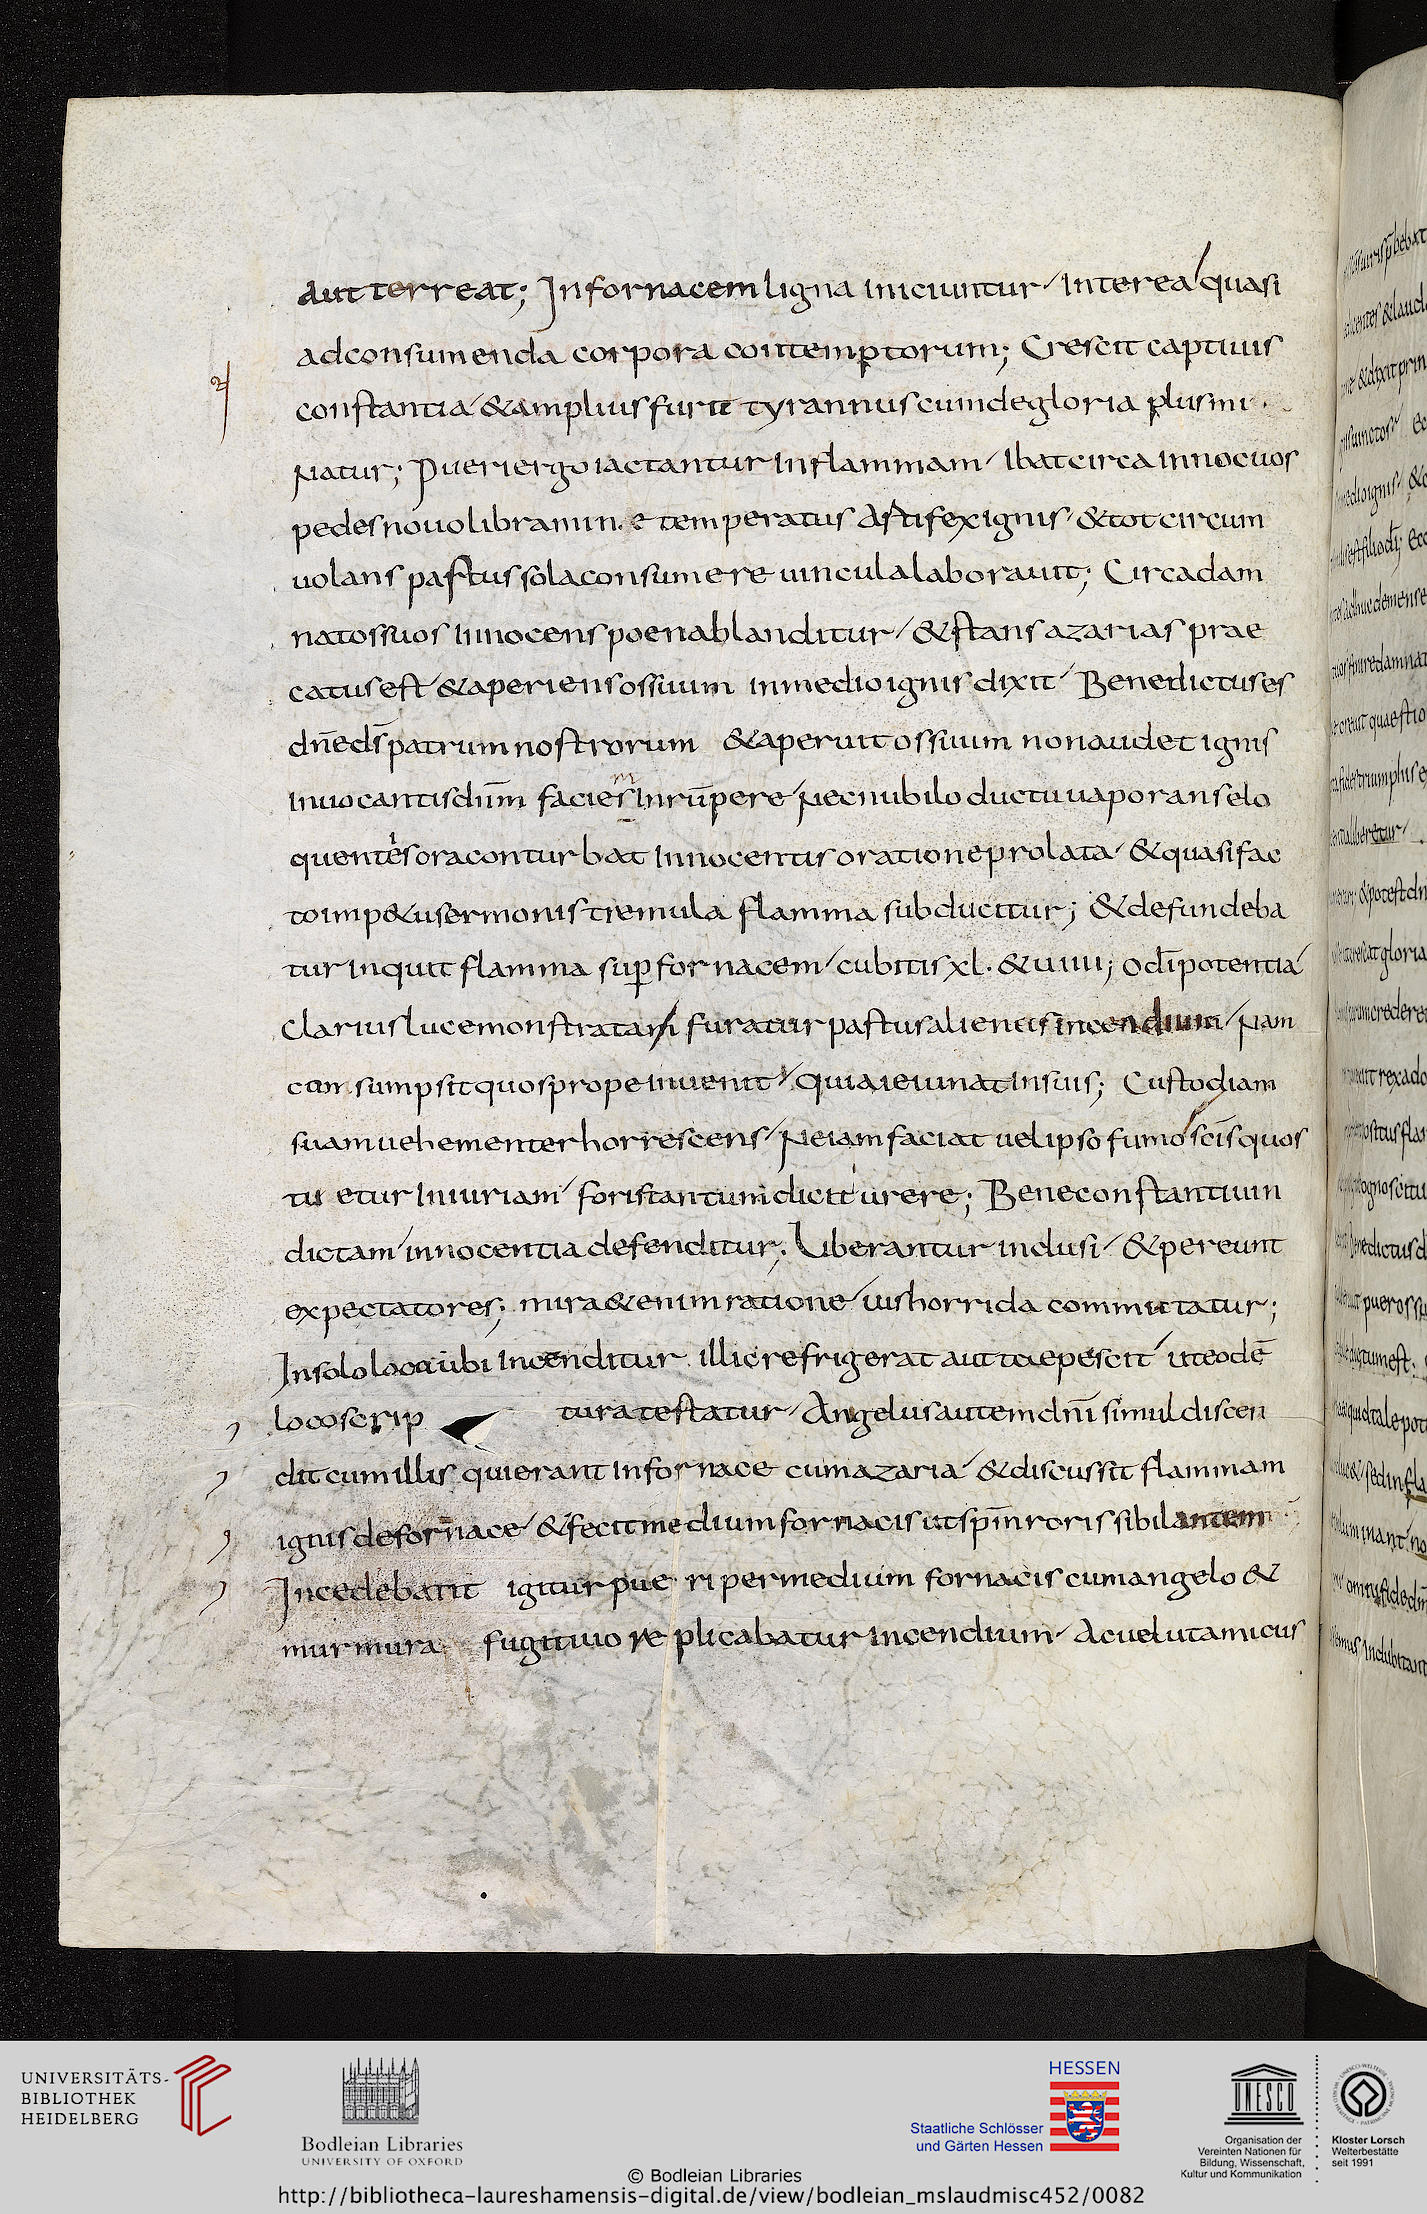 aut terreat; Infornacem ligna iniciuntur Interea quasi
adconsumenda corpora contemptorum; Crescit captiuis
constantia &amplius furit tyrannus cumdegloria plusmi
natur; Pueriergo iactantur inflammam Ibat circa innocuos
pedes nouo libramin e temperatus artifex ignis &tot circum
uolans pastus sola consumere uincula laborauit; Circa dam
natos suos innocens poena blanditur &stans azarias prae
catus est &aperiens os suum inmedio ignis dixit Benedictus es
dn̄e ds̄ patrum nostrorum &aperuit os suum nonaudet ignis
inuocantis dn̄m facies inrūpere nec nubilo ductu uaporans elo
quentes ora conturbat innocentis oratione prolata &quasi fac
to imp&u sermonis tremula flamma subducitur; &defundeba
tur inquit flamma sup̄ fornacem cubitis xl. &uiiii; o dī potentia
Clarius luce monstratam furatur pastus alienus incendium nam
cum sumpsit quos prope inuenit quia ieiunat insuis; Custodiam
suam uehementer horrescens ne iam faciat uel ipso fumo scīs quos
tu etur iniuriam foris tantum dicit urere; Bene constantium
dictam innocentia defenditur; Liberantur inclusi &pereunt
expectatores; mira&enim ratione uis horrida commutatur;
Insolo loco ubi incenditur illic refrigerat aut tepescit ut eodē
loco scrip tura testatur Angelus autem dnī simul discen
dit cum illis qui erant infornace cum azaria &discussit flammam
ignis de fornace &fecit medium fornacis ut spm̄ roris sibilantem
Incedebant igitur pue ri per medium fornacis cum angelo &
murmura fugitiuo re plicabatur incendium Ac uelut amicus
UNIVERSITÄTS-
BIBLIOTHEK
HEIDELBERG
Bodleian Libraries
UNIVERSITY OF OXFORD
HESSEN
Staatliche Schlösser
und Gärten Hessen
UNESCO
Organisation der
Vereinten Nationen für
Bildung, Wissenschaft,
Kultur und Kommunikation
Kloster Lorsch
Welterbestätte
seit 1991
© Bodleian Libraries
http://bibliotheca-laureshamensis-digital.de/view/bodleian_mslaudmisc452/0082